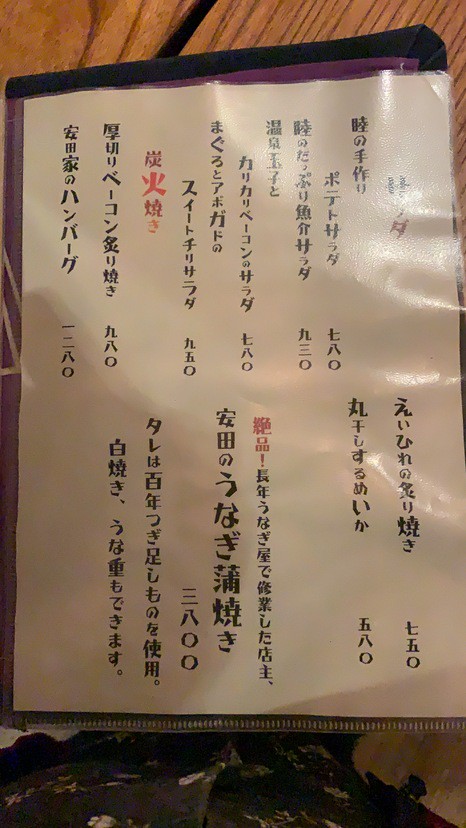 サラダ
睦の手作り
ポテトサラダ 七八〇
睦のたっぷり魚介サラダ 九三〇
温泉玉子と
カリカリベーコンのサラダ 七八〇
まぐろとアボガドの
スイートチリサラダ 九五〇
炭火焼き
厚切りベーコン炙り焼き 九八〇
安田家のハンバーグ 一二八〇
えいひれの炙り焼き 七五〇
丸干しするめいか 五八〇
絶品！長年うなぎ屋で修業した店主、
安田のうなぎ蒲焼き
三八〇〇
タレは百年つぎ足しものを使用。
白焼き、うな重もできます。